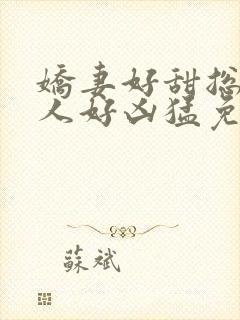 嬌妻好甜摠
人好凶猛免
蘇斌